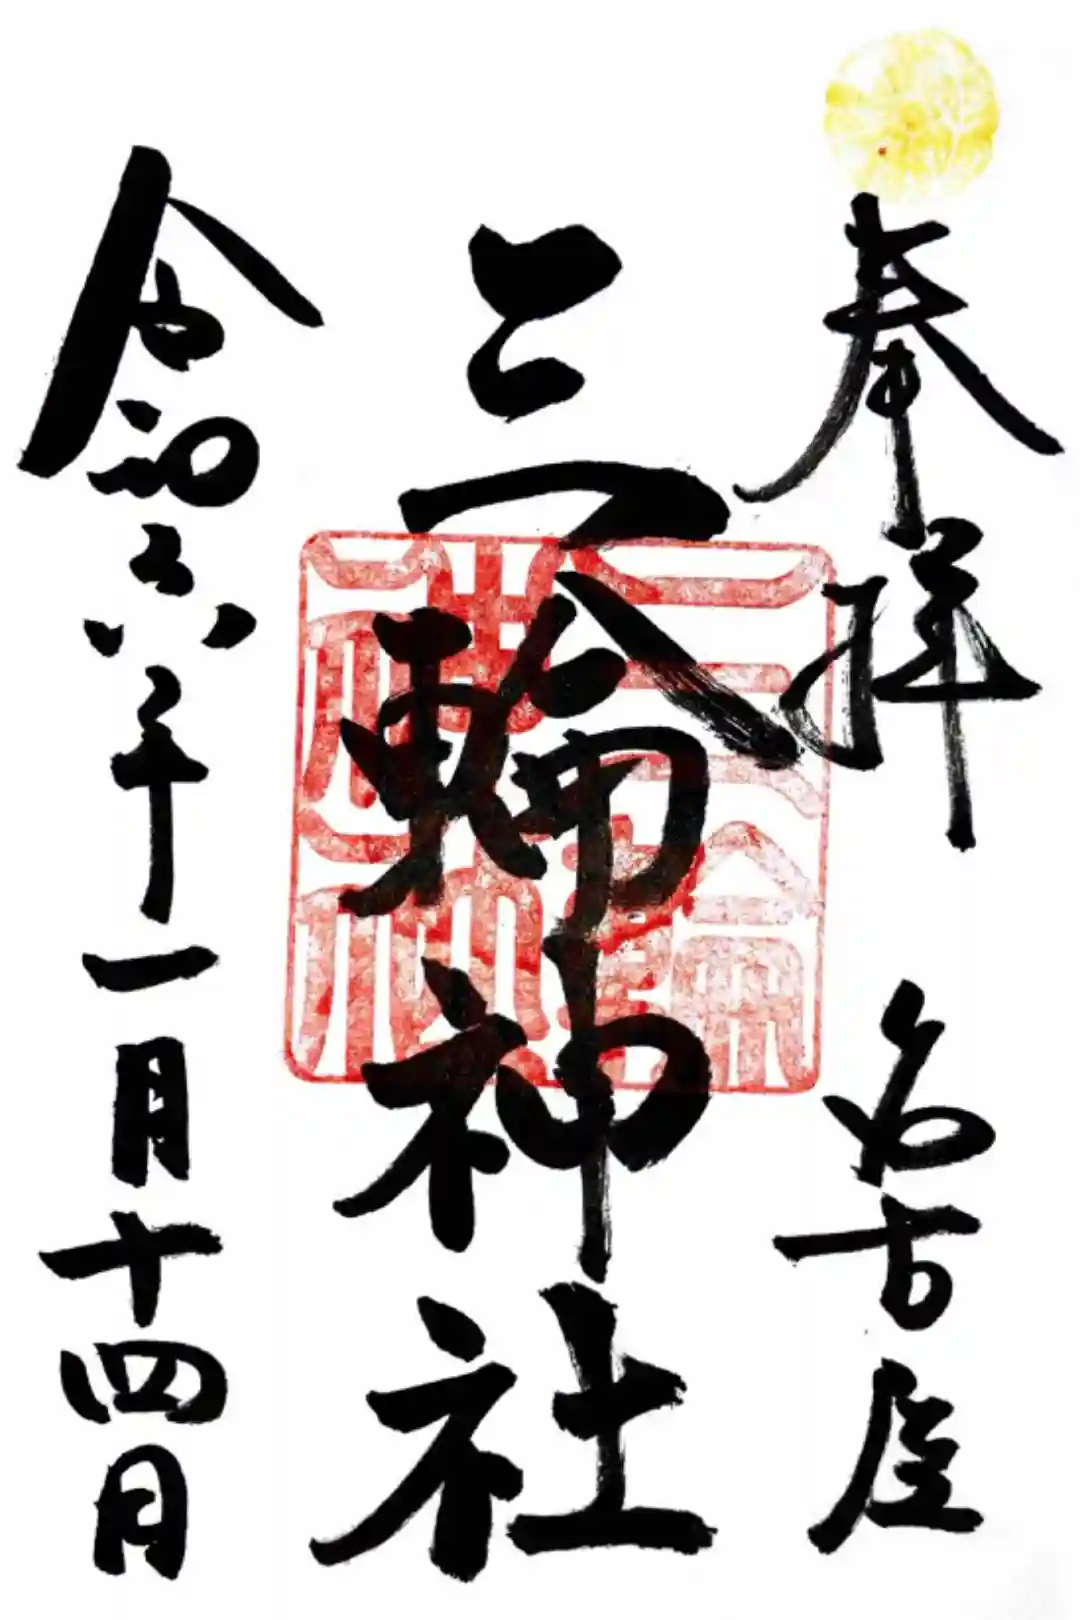 奉拝
名古屋
三輪神社
令和六年一月十四日
三輪神社